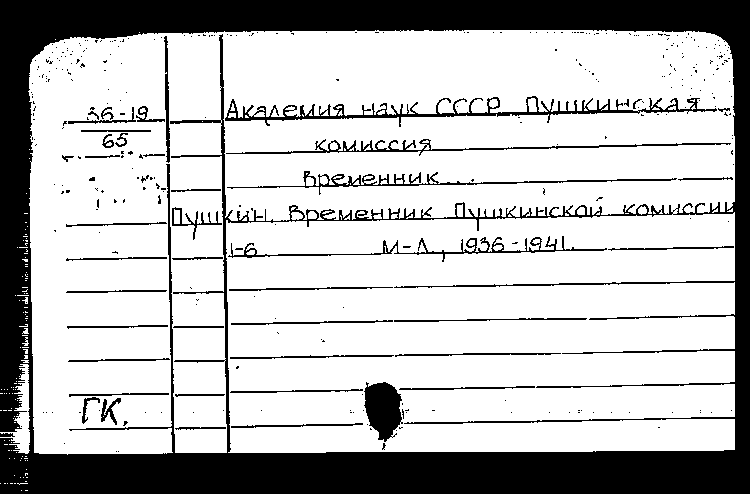 36-19
65
Академия наук СССР Пушкинская
комиссия
Временник...
Пушкин. Временник Пушкинской комиссии
1-6 М-Л, 1936-1941.
ГК.